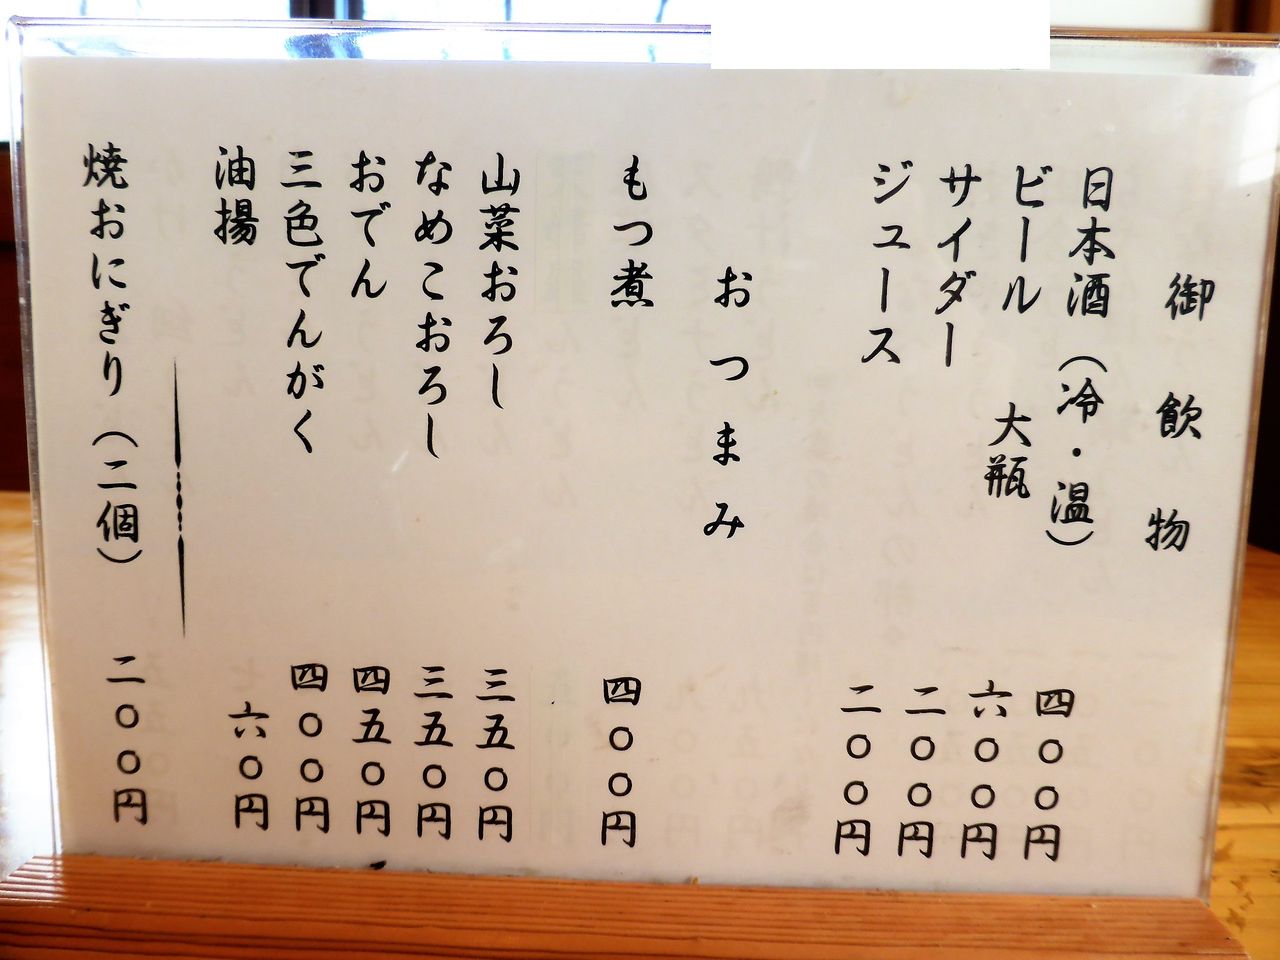 御飲物
日本酒（冷・温） 四〇〇円
ビール 大瓶 六〇〇円
サイダー 二〇〇円
ジュース 二〇〇円
おつまみ
もつ煮 四〇〇円
山菜おろし 三五〇円
なめこおろし 三五〇円
おでん 四五〇円
三色でんがく 四〇〇円
油揚 六〇円
焼おにぎり（二個） 二〇〇円